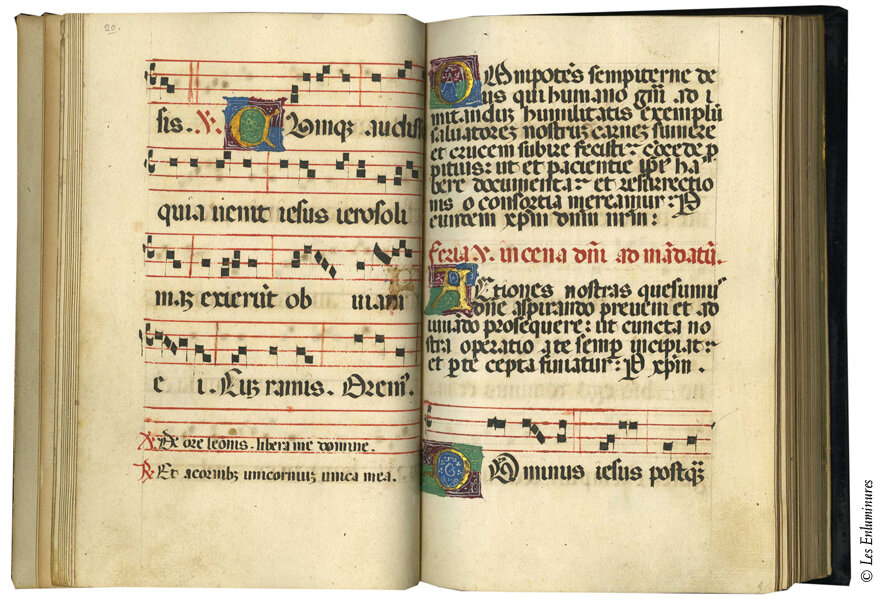 20.
sis. V. Cumq3 audiss
quia venit iesus ierosoli
maz exierūt ob viam
e i. Cuz ramis. Orem9.
V De ore leonis. libera me domine.
R Et a cornib3 unicornuz unica mea.
OMnipotēs sempiterne de
us qui humano gn̄i ad i
mitanduz humilitatis exemplū
saluatorez nostruz carnez sumere
et crucem subire fecisti: cōcede p
pitius: ut et pacientie ip̄i9 ha
bere documenta: et resurrectio
nis o consortia mereamur: P
eundem xp̄m dn̄m nr̄m:
feria V. in cena dn̄i ad mādatū.
ACtiones nostras quesumus
dn̄e aspirando preveni et ad
iuuādo prosequere: ut cuncta no
stra operatio a te semp incipiat:
et p te cepta finiatur: P xp̄m.
DOminus iesus postq̄3
© Les Enluminures